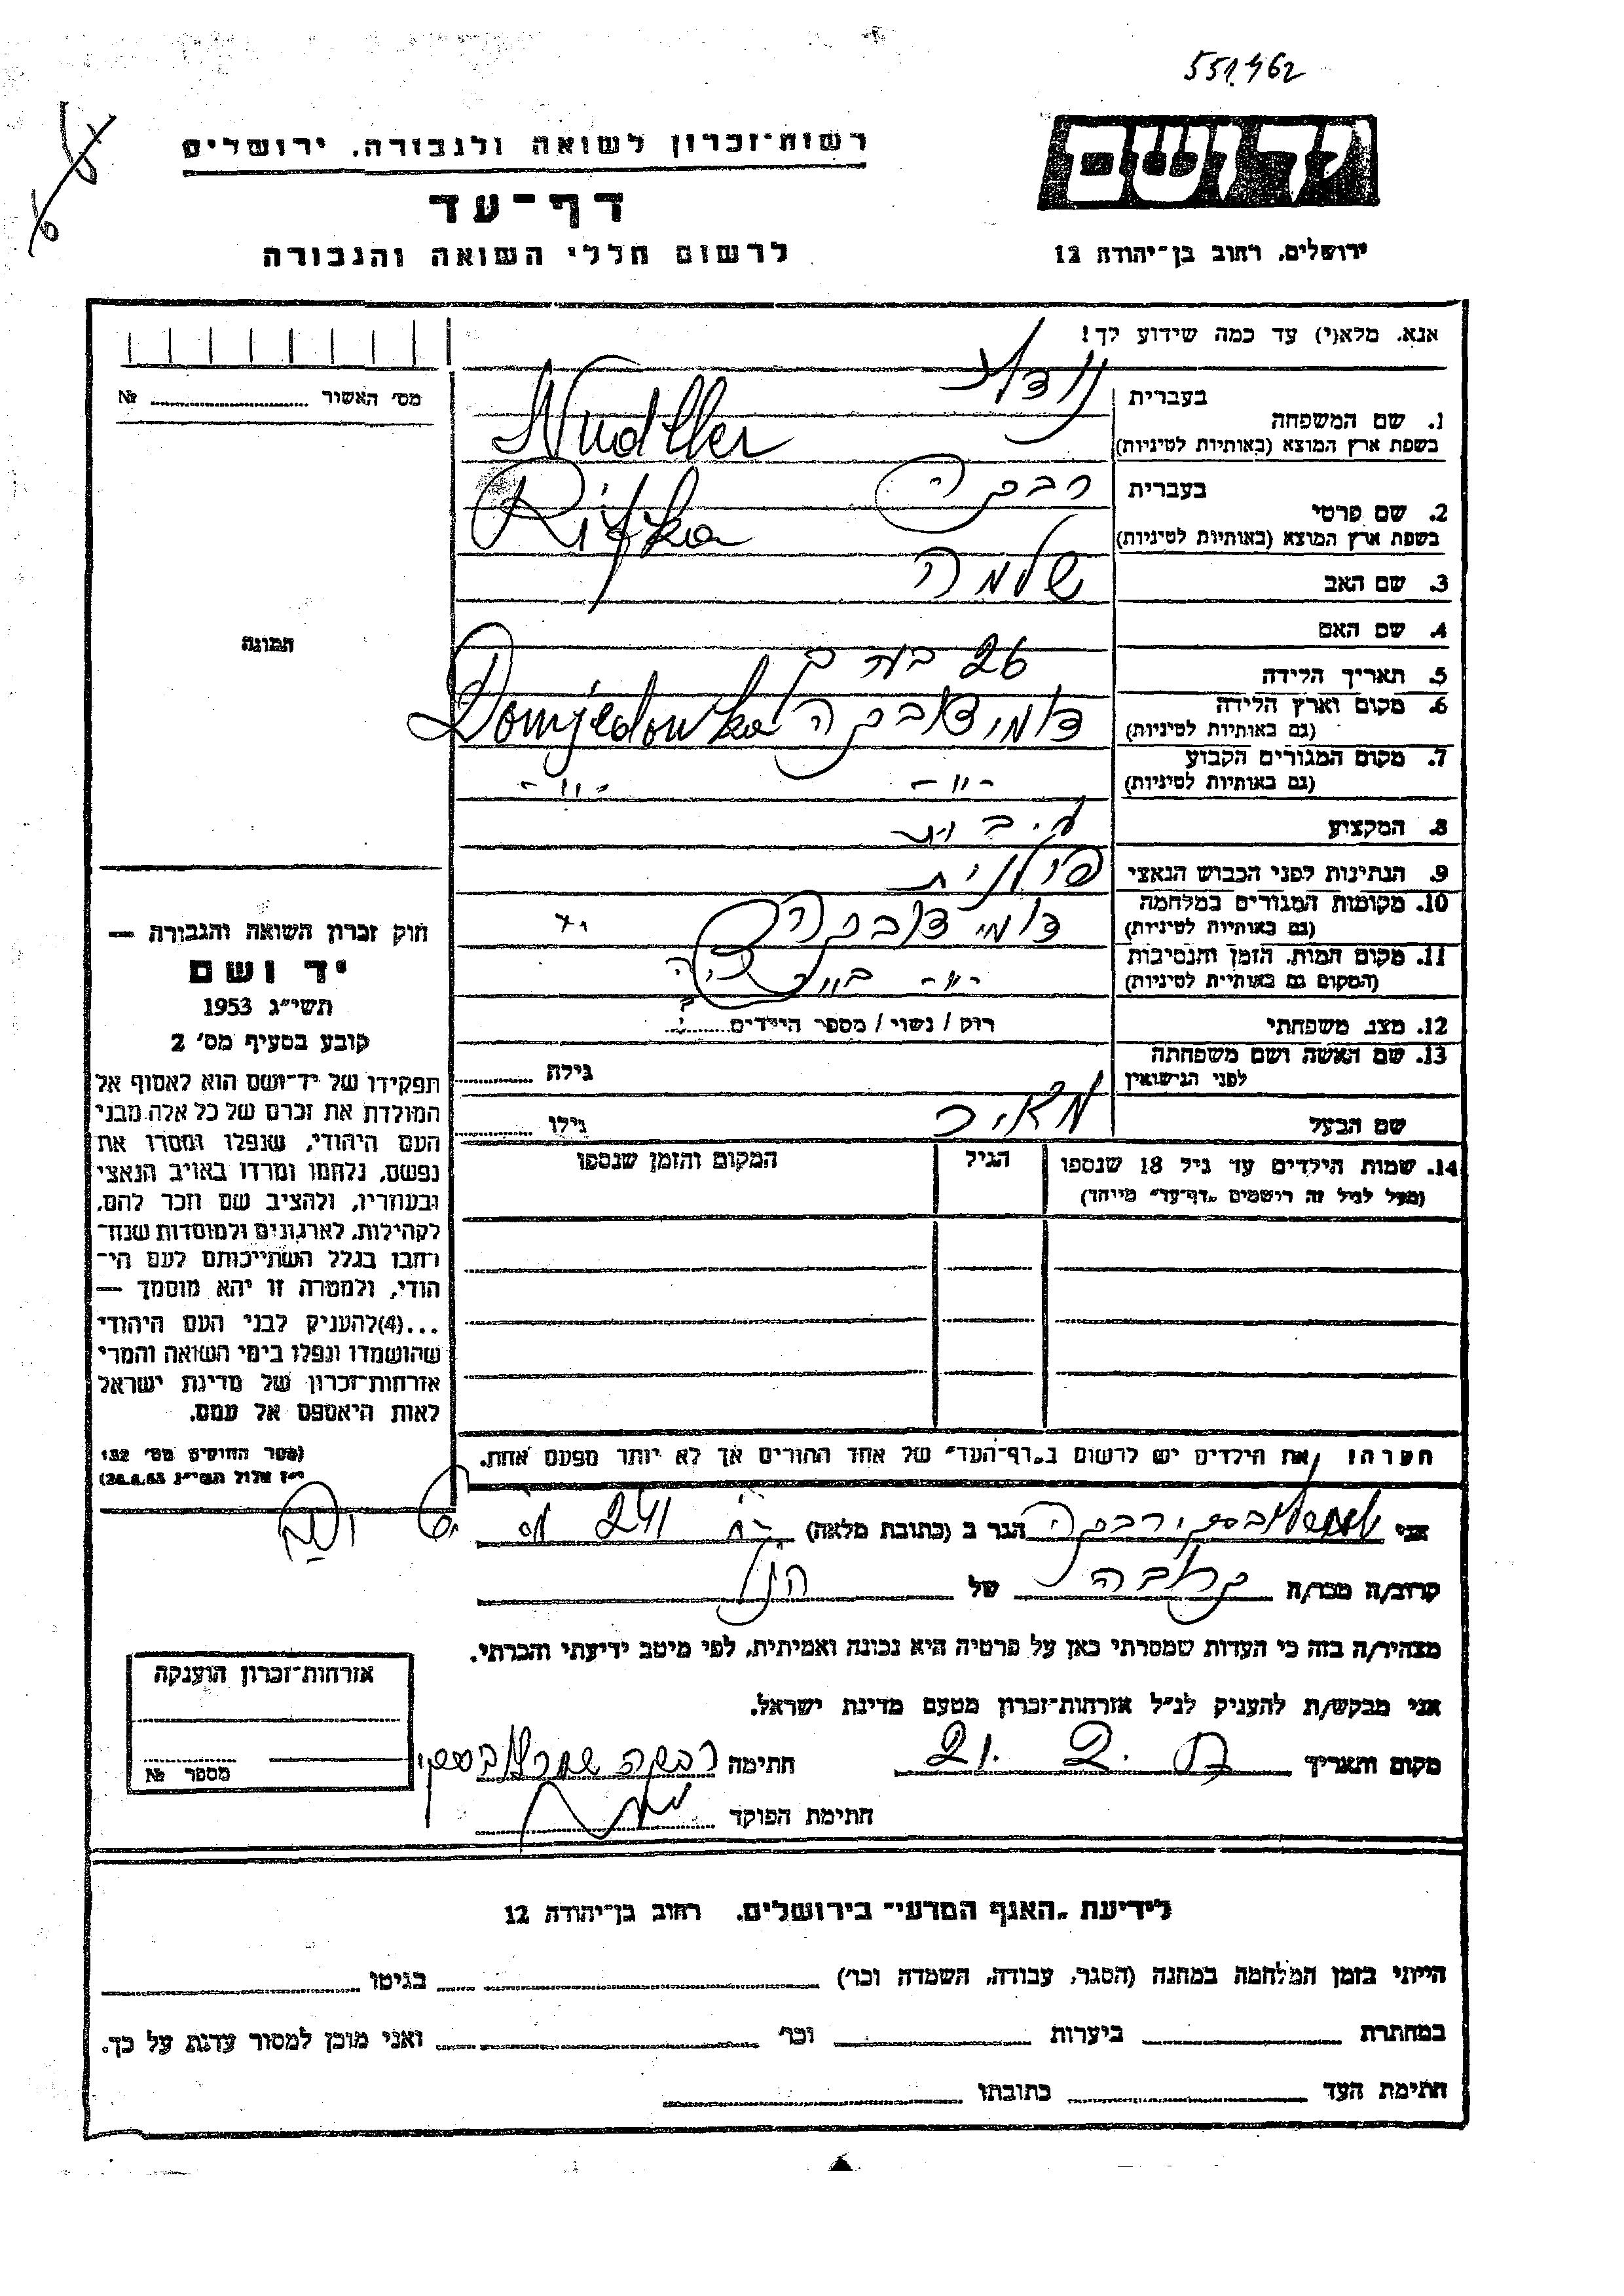 551,462
רשות־זכרון לשואה ולגבורה, ירושלים
יד ושם
דף־עד
לרשום חללי השואה והגבורה
ירושלים, רחוב בן־יהודה 12
אנא, מלא(י) עד כמה שידוע לך!
מס׳ האשור № ........
1. שם המשפחה
בעברית
בשפת ארץ המוצא (באותיות לטיניות) Nudller
2. שם פרטי
בעברית רבקה
בשפת ארץ המוצא (באותיות לטיניות) Rifka
3. שם האב שלמה
4. שם האם
5. תאריך הלידה 26
6. מקום וארץ הלידה
(גם באותיות לטיניות) Domjedowka
7. מקום המגורים הקבוע
(גם באותיות לטיניות) -״- -״-
8. המקצוע
9. הנתינות לפני הכבוש הנאצי פולנית
10. מקומות המגורים במלחמה
(גם באותיות לטיניות)
11. מקום המות, הזמן והנסיבות
(המקום גם באותיות לטיניות) -״-
12. מצב משפחתי רוק / נשוי / מספר הילדים ........
13. שם האשה ושם משפחתה
לפני הנישואין גילה ........
שם הבעל מאיר גילו ........
14. שמות הילדים עד גיל 18 שנספו הגיל המקום והזמן שנספו
(מעל לגיל זה רישמים „דף־עד״ מיוחד)
תמונה
חוק זכרון השואה והגבורה —
יד ושם
תשי״ג 1953
קובע בסעיף מס׳ 2
תפקידו של יד־ושם הוא לאסוף אל
המולדת את זכרם של כל אלה מבני
העם היהודי, שנפלו ומסרו את
נפשם, נלחמו ומרדו באויב הנאצי
ובעוזריו, ולהציב שם וזכר להם,
לקהילות, לארגונים ולמוסדות שנח־
רחבו בגלל השתייכותם לעם הי־
הודי, ולמטרה זו יהא מוסמך —
...(4)להעניק לבני העם היהודי
שהושמדו ונפלו בימי השואה והמרי
אזרחות־זכרון של מדינת ישראל
לאות היאספם אל עמם.
(ספר החוקים מס׳ 132
י״ז אלול תשי״ג 28.8.53)
הערה: את הילדים יש לרשום ב„דף־העד״ של אחד ההורים אך לא יותר מפעם אחת.
אני רבקה הגר ב (כתובת מלאה) 241
קרוב/ה מכר/ה קרובה של הנ״ל
מצהיר/ה בזה כי העדות שמסרתי כאן על פרטיה היא נכונה ואמיתית, לפי מיטב ידיעתי והכרתי.
אני מבקש/ת להעניק לנ״ל אזרחות־זכרון מטעם מדינת ישראל.
מקום ותאריך חתימה רבקה
חתימת הפוקד
אזרחות־זכרון הוענקה
מספר №
לידיעת „האגף המדעי״ בירושלים, רחוב בן־יהודה 12
הייתי בזמן המלחמה במחנה (הסגר, עבודה, השמדה וכו׳) בגיטו
במחתרת ביערות וכו׳ ואני מוכן למסור עדות על כך.
חתימת העד כתובתו